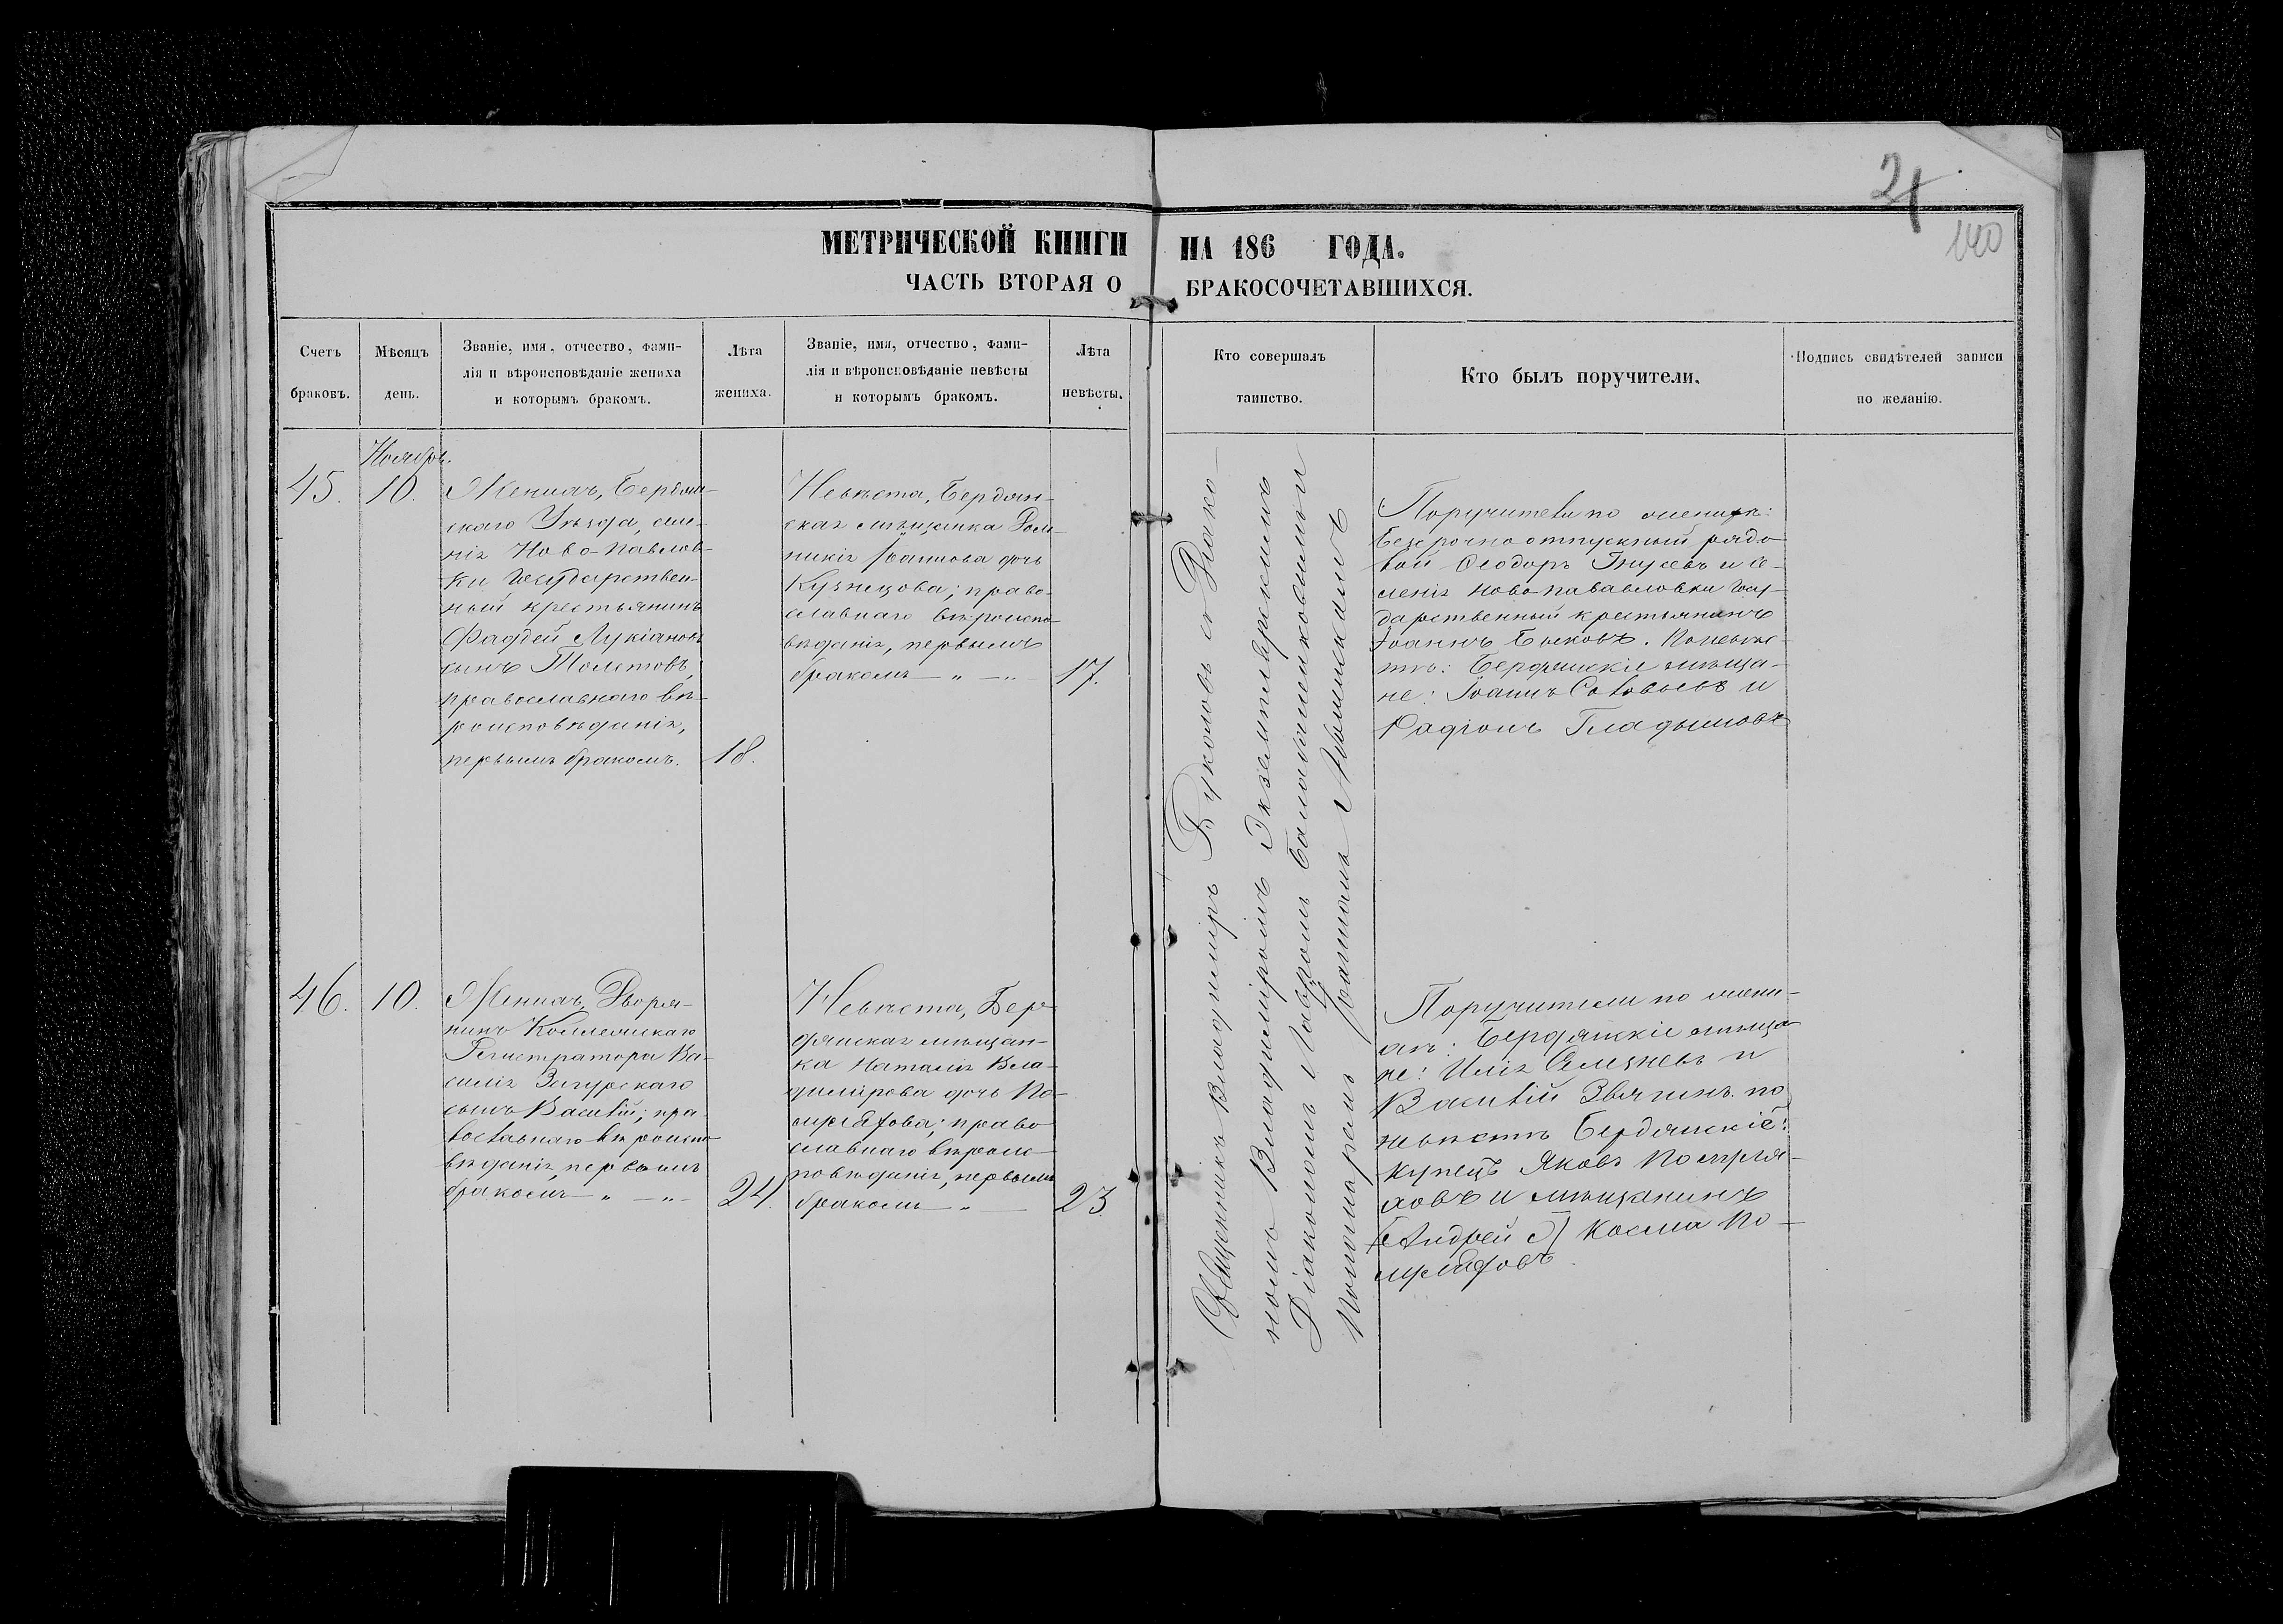 24
140
МЕТРИЧЕСКОЙ КНИГИ НА 186 ГОДА.
ЧАСТЬ ВТОРАЯ О БРАКОСОЧЕТАВШИХСЯ.
Счетъ
браковъ.
Мѣсяцъ
день.
Званіе, имя, отчество, фами-
лія и вѣроисповѣданіе жениха
и которымъ бракомъ.
Лѣта
жениха.
Званіе, имя, отчество, фами-
лія и вѣроисповѣданіе невѣсты
и которымъ бракомъ.
Лѣта
невѣсты.
Кто совершалъ
таинство.
Кто былъ поручители.
Подпись свидѣтелей записи
по желанію.
Ноябрь.
45.
10.
Женихъ, Бердян-
скаго Уѣзда, селе-
нія Ново-Павлов-
ки Государствен-
ный крестьянинъ
Фаддей Лукіановъ
сынъ Толстовъ,
православнаго вѣ-
роисповѣданія,
первымъ бракомъ.
18.
Невѣста, Бердян-
ская мѣщанка
Іоаннова дочь
Кузнецова; право-
славнаго вѣроиспо-
вѣданія, первымъ
бракомъ — „ — „
17.
Священникъ Владиміръ Буколовъ съ Діако-
номъ Владиміромъ
Діакономъ и
Пономаремъ Іоанномъ
Поручители по женихѣ:
Безсрочноотпускный рядо-
вой Ѳеодоръ и се-
ленія Ново-павловки Госу-
дарственный крестьянинъ
Іоаннъ Быковъ. По невѣс-
тѣ: Бердянскіе мѣща-
не: Іоаннъ Соловьевъ и
Радіонъ Гладышовъ
46.
10.
Женихъ, Дворя-
нинъ Коллежскаго
Регистратора Ва-
силія Загурскаго
сынъ Василій; пра-
вославнаго вѣроиспо-
вѣданія, первымъ
бракомъ — „ — „
24.
Невѣста, Бер-
дянская мѣщан-
ка Наталія Вла-
димірова дочь По-
; право-
славнаго вѣроис-
повѣданія, первымъ
бракомъ — „ —
23.
Поручители по жени-
хѣ: Бердянскіе мѣща-
не: Илія и
Василій Звягинъ. по
невѣстѣ Бердянскіе:
купецъ Яковъ
и мѣщанинъ
Андрей Косма По-